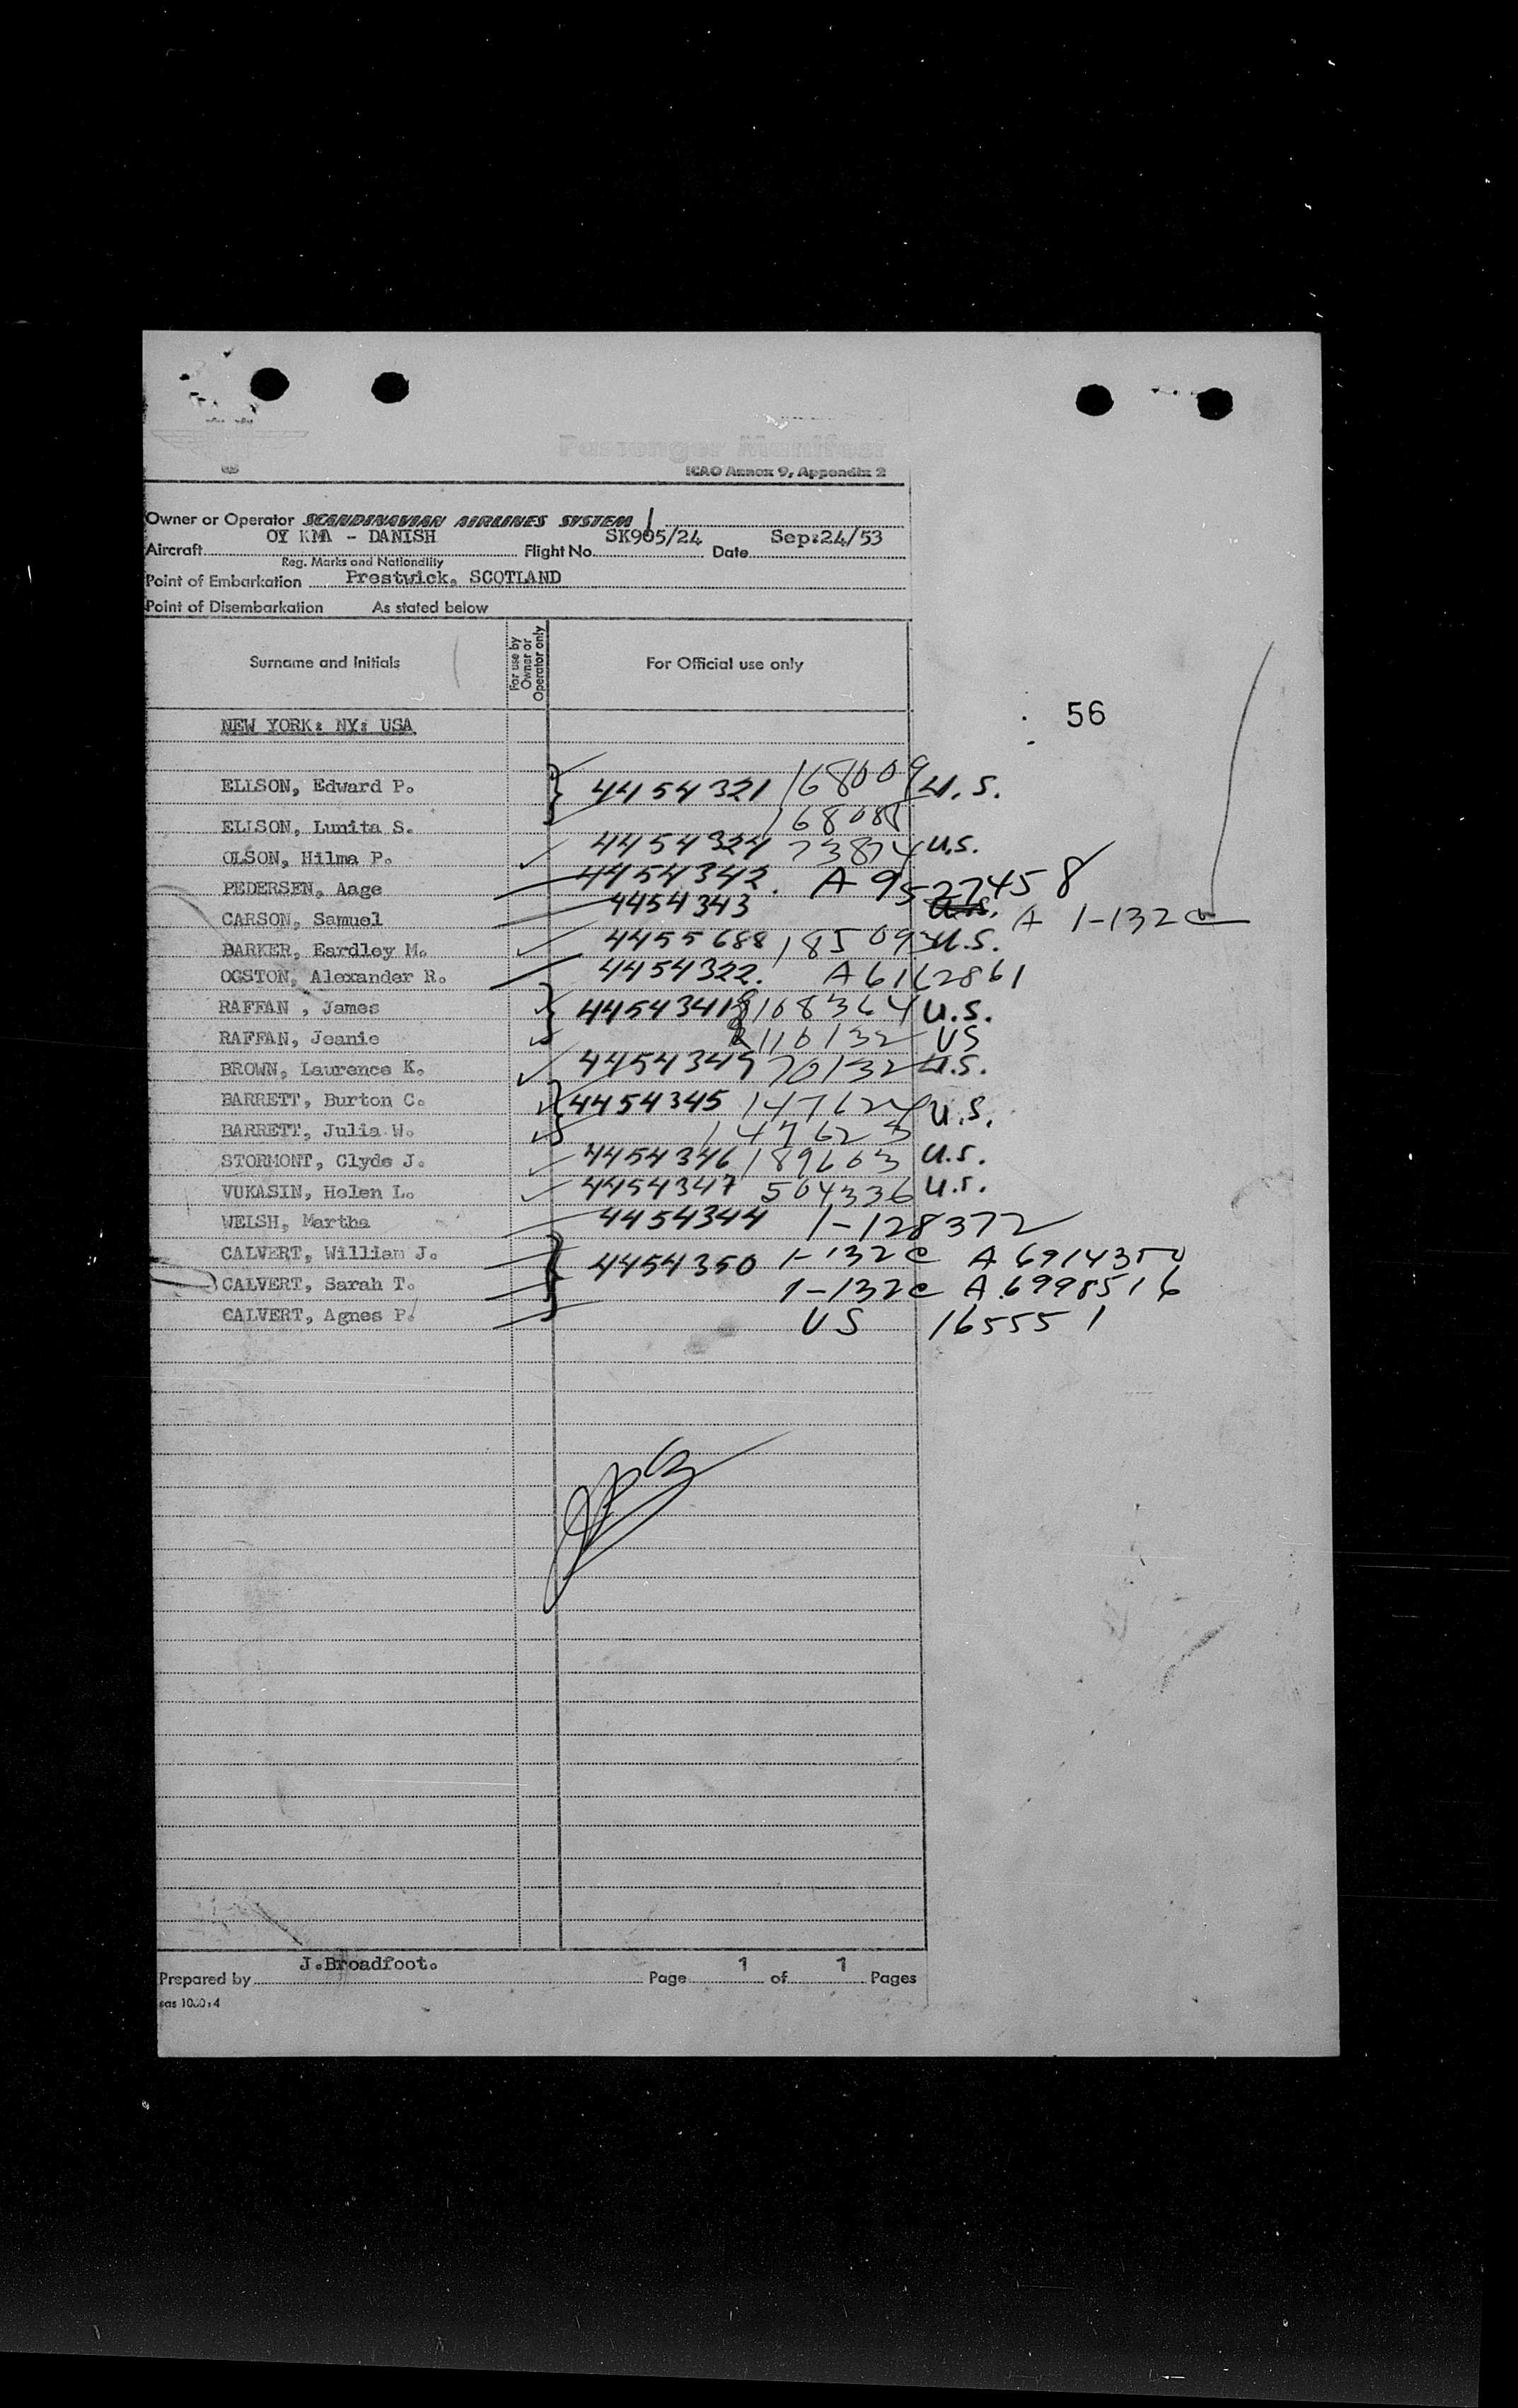 Passenger Manifest
ICAO Annex 9, Appendix 2
Owner or Operator SCANDINAVIAN AIRLINES SYSTEM
OY KMA - DANISH SK905/24 Sep:24/53
Aircraft Flight No. Date
Reg. Marks and Nationality
Point of Embarkation Prestwick, SCOTLAND
Point of Disembarkation As stated below
Surname and Initials For use by Owner or Operator only For Official use only
56
NEW YORK: NY: USA
ELLSON, Edward P. 4454321 168009 U.S.
ELLSON, Lunita S.
OLSON, Hilma P. 4454324 73874 U.S.
PEDERSEN, Aage 4454342. A 9527458
CARSON, Samuel 4454343 U.S. A 1-132c
BARKER, Eardley M. 4455688 185093 U.S.
OGSTON, Alexander R. 4454322. A6162861
RAFFAN , James 4454341 108364 U.S.
RAFFAN, Jeanie 110132 US
BROWN, Laurence K. 4454349 70132 U.S.
BARRETT, Burton C. 4454345 147624 U.S.
BARRETT, Julia W. 147623
STORMONT, Clyde J. 4454346 189603 U.S.
VUKASIN, Helen L. 4454347 504336 U.S.
WELSH, Martha 4454344 1-128372
CALVERT, William J. 4454350 1-132c A 6914350
CALVERT, Sarah T. 1-132c A.6998516
CALVERT, Agnes P. US 165551
J.Broadfoot.
Prepared by Page 1 of 1 Pages